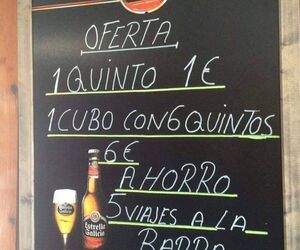 OFERTA
1 QUINTO 1€
1 CUBO CON 6 QUINTOS
6€
AHORRO
5 VIAJES A LA
BARRA
Estrella
Galicia